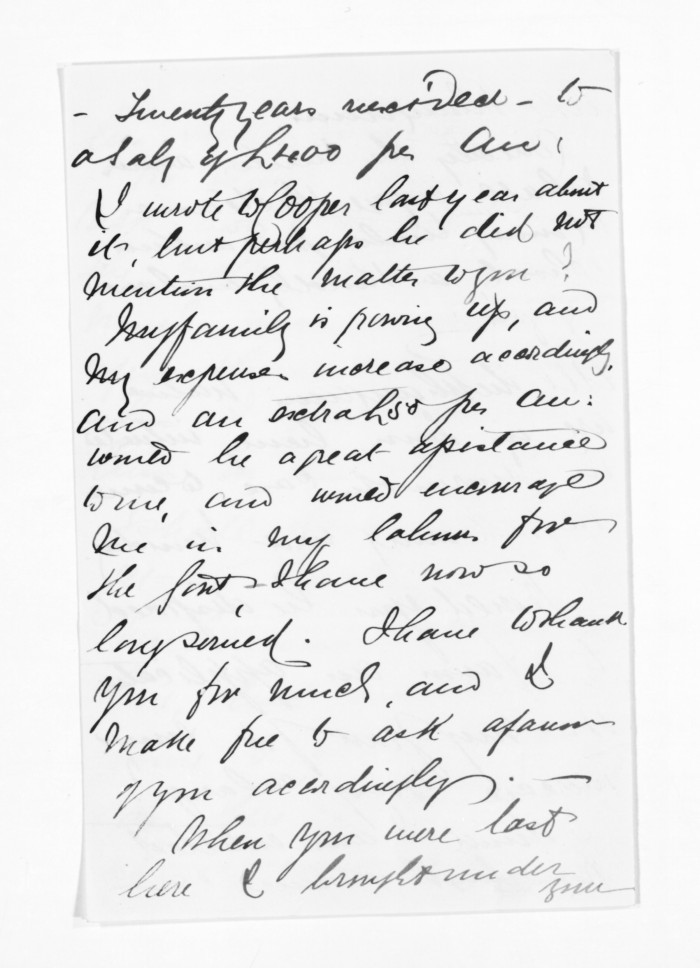 - Twenty years next Decr - to
a Saly of £400 per An:
I wrote to Cooper last year about
it, but perhaps he did not
mention the matter to you?
My family is growing up, and
my expenses increase accordingly,
and an extra £50 per An:
would be a great assistance
to me, and would encourage
me in my labours for
the Govt, I have now so
long served. I have to thank
you for much, and I
make free to ask a favour
of you accordingly. -
When you were last
here I brought under
your